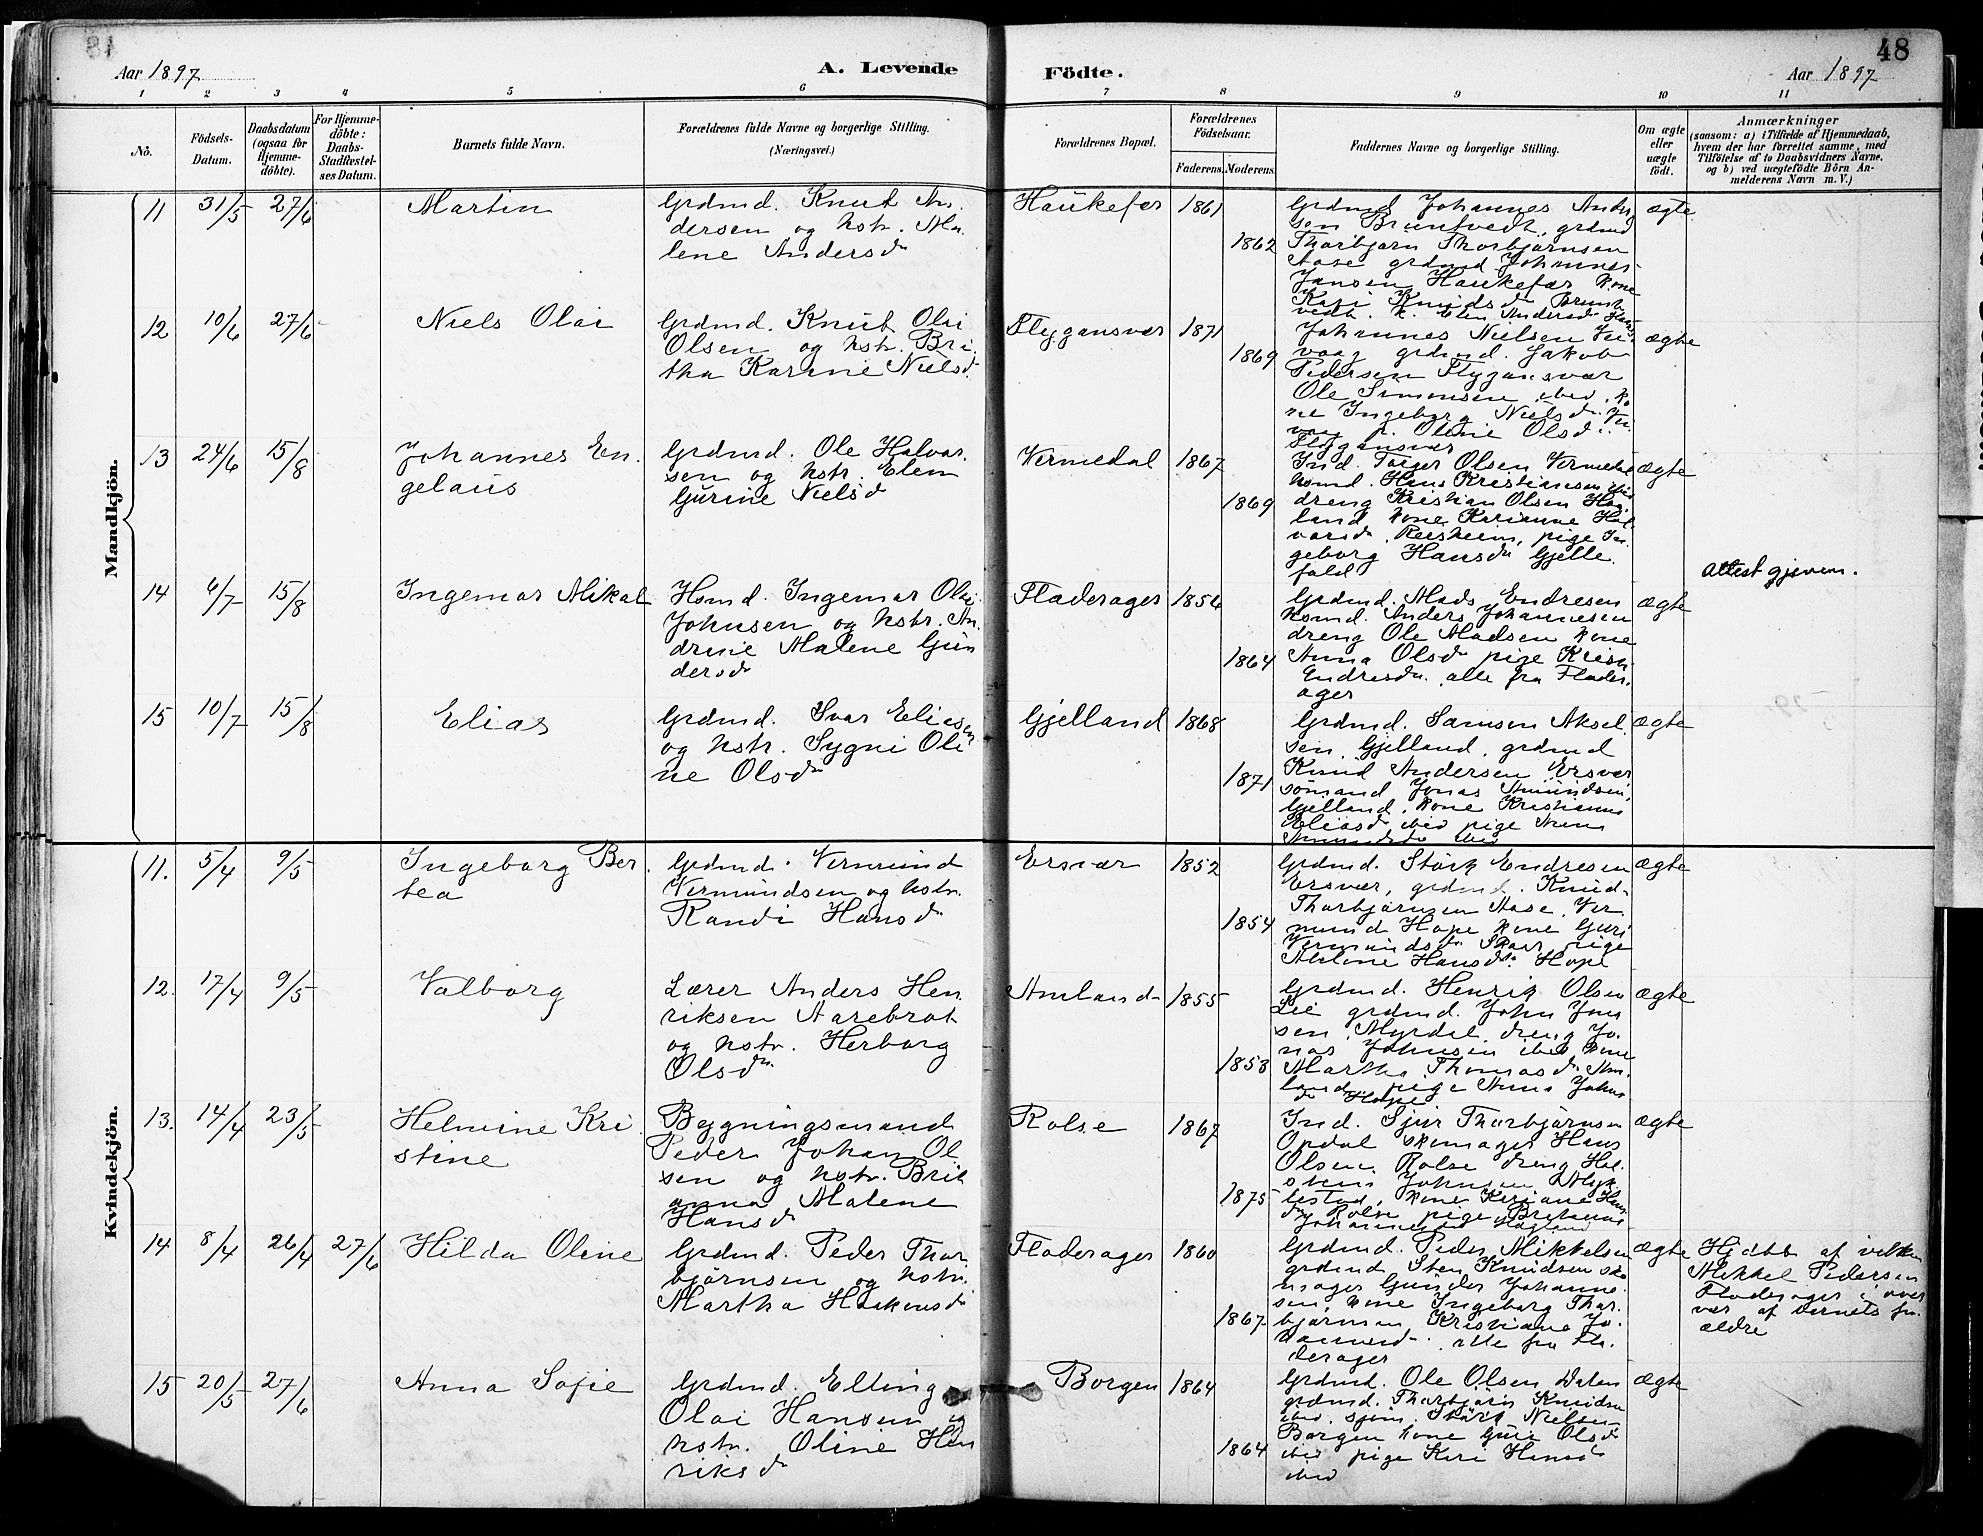 48
Aar 1897
A. Levende Födte.
Aar 1897
1 2 3 4 5 6 7 8 9 10 11
No.
Födsels-
Datum.
Daabsdatum
(ogsaa for
Hjemme-
döbte).
For Hjemme-
döbte:
Daabs-
Stadfæstel-
ses Datum.
Barnets fulde Navn.
Forældrenes fulde Navne og borgerlige Stilling.
(Næringsvei.)
Forældrenes Bopæl.
Forældrenes
Födselsaar.
Faderens. Moderens.
Faddernes Navne og borgerlige Stilling.
Om ægte
eller
uægte
födt.
Anmærkninger
(saasom: a) i Tilfælde af Hjemmedaab,
hvem der har forrettet samme, med
Tilföielse af to Daabsvidners Navne,
og b) ved uægtefödte Börn An-
melderens Navn m. V.)
Mandkjön.
11 31/5 27/6 Martin
Grdmd. Knut An
dersen og hstr. Ma
lene Andersd
Haukefær 1861
1862
Grdmd Johannes Ander
sen Bruntvedt, grdmd
Thorbjørn Thorbjørnsen
Aase grdmd Johannes
Jansen Haukefær kone
Kari Knudsd Brunt
vedt, k. Elen Andersd
ægte
12 10/6 27/6 Niels Olai
Grdmd. Knut Olai
Olsen og hstr. Bri
tha Karine Nielsd
Flygansvær 1871
1869
Johannes Nielsen
vaag grdmd. Jakob
Pedersen Flygansvær
Ole Simonsen ibid, ko
ne Ingeborg Nielsd
Oline Olsd
Flygansvær
ægte
13 24/6 15/8 Johannes En
gelaus
Grdmd. Ole Halvor
sen og hstr. Elen
Gurine Nielsd
Vermedal 1867
1869
Ind. Torger Olsen Vermedal
hsmd. Hans Kristiansen ibid
dreng Kristian Olsen Haa
land, kone Karianne Hal
varsd. Reesheim, pige In
geborg Hansd Gjelle
fald
ægte
14 6/7 15/8 Ingemar Mikal
Hsmd. Ingemar Olai
Johnsen og hstr. An
drine Malene Gun
dersd
Fladerager 1856
1864
Grdmd. Mads Endresen
hsmd. Anders Johannesen
dreng Ole Madsen kone
Anna Olsd pige Krist.
Endresdn. alle fra Flader.
ager
ægte
Attest gjeven.
15 10/7 15/8 Elias
Grdmd. Ivar Eliasen
og hstr. Sygni Oli
ne Olsd
Gjelland 1868
1871
Grdmd. Samson Aksel
sen, Gjelland, grdmd
Knud Andersen Ersvær
sömand Jonas Amundsen,
Gjelland, kone Kristianne
Eliasd ibid pige
Amundsd ibid
ægte
Kvindekjön.
11. 5/4 9/5 Ingeborg Ber
tea
Grdmd. Vermund
Vermundsen og hstr.
Randi Hansd
Ersvær 1852
1854
Grdmd. Störk Endresen
Ersvær, grdmd. Knud
Thorbjørnsen Aase, Ver
mund Hope kone Guri
Vermundsd. Skaar, pige
Hansd. Hope
ægte
12. 17/4 9/5 Valborg
Lærer Anders Hen
riksen Aarebrot
og hstr. Herborg
Olsdn.
Amland 1855
1853
Grdmd. Henrik Olsen
Lie grdmd. John Jon
sen, Myrdal, dreng Jo
nas Johnsen ibid kone
Martha Thomasd. Am
land, pige Anna Johns
d Hope
ægte
13. 14/4 23/5 Helmine Kri
stine
Bygningsmand
Peder Johan Ol
sen og hstr. Brit
anna Malene
Hansd
Rolse 1867
1875
Ind. Sjur Thorbjørnsen
Opdal skomager Hans
Olsen Rolse dreng Hal
sten Johnsen Myk
lestad, kone Hans
d Rolse pige
ægte
14 8/4 26/4 27/6 Hilda Oline
Grdmd. Peder Thor
bjørnsen og hstr.
Martha Haakonsd
Fladerager 1860
1867
Grdmd. Peder Mikkelsen
grdmd Sten Knudsen sko
mager Gunder Johanne
sen, kone Ingeborg Thor
bjørnsen, Kristiane Jo
hannesd. alle fra Fla
derager
ægte
Hjdbt af
Mikkel Pedersen
Fladerager i over
vær af barnets for
ældre
15 20/5 27/6 Anna Sofie
Grdmd. Elling
Olai Hansen og
hstr. Oline Hen
riksd
Borgen 1864
1864
Grdmd. Ole Olsen Dalen
grdmd. Thorbjørn Knudsen
ibid. Störk Nielsen
Borgen kone Guri Olsd
ibid pige Kari Hansd
ibid
ægte